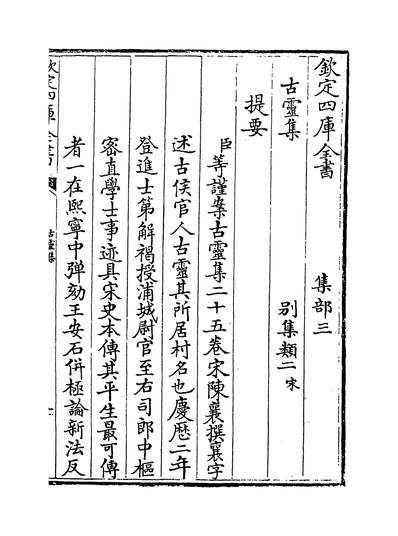 欽定四庫全書
集部三
古靈集
別集類二 宋
提要
臣等謹案古靈集二十五卷宋陳襄撰襄字
述古侯官人古靈其所居村名也慶歷二年
登進士第解褐授浦城尉官至右司郎中樞
密直學士事迹具宋史本傳其平生最可傳
者一在熙寧中彈劾王安石併極論新法反
欽定四庫全書
古靈集
一